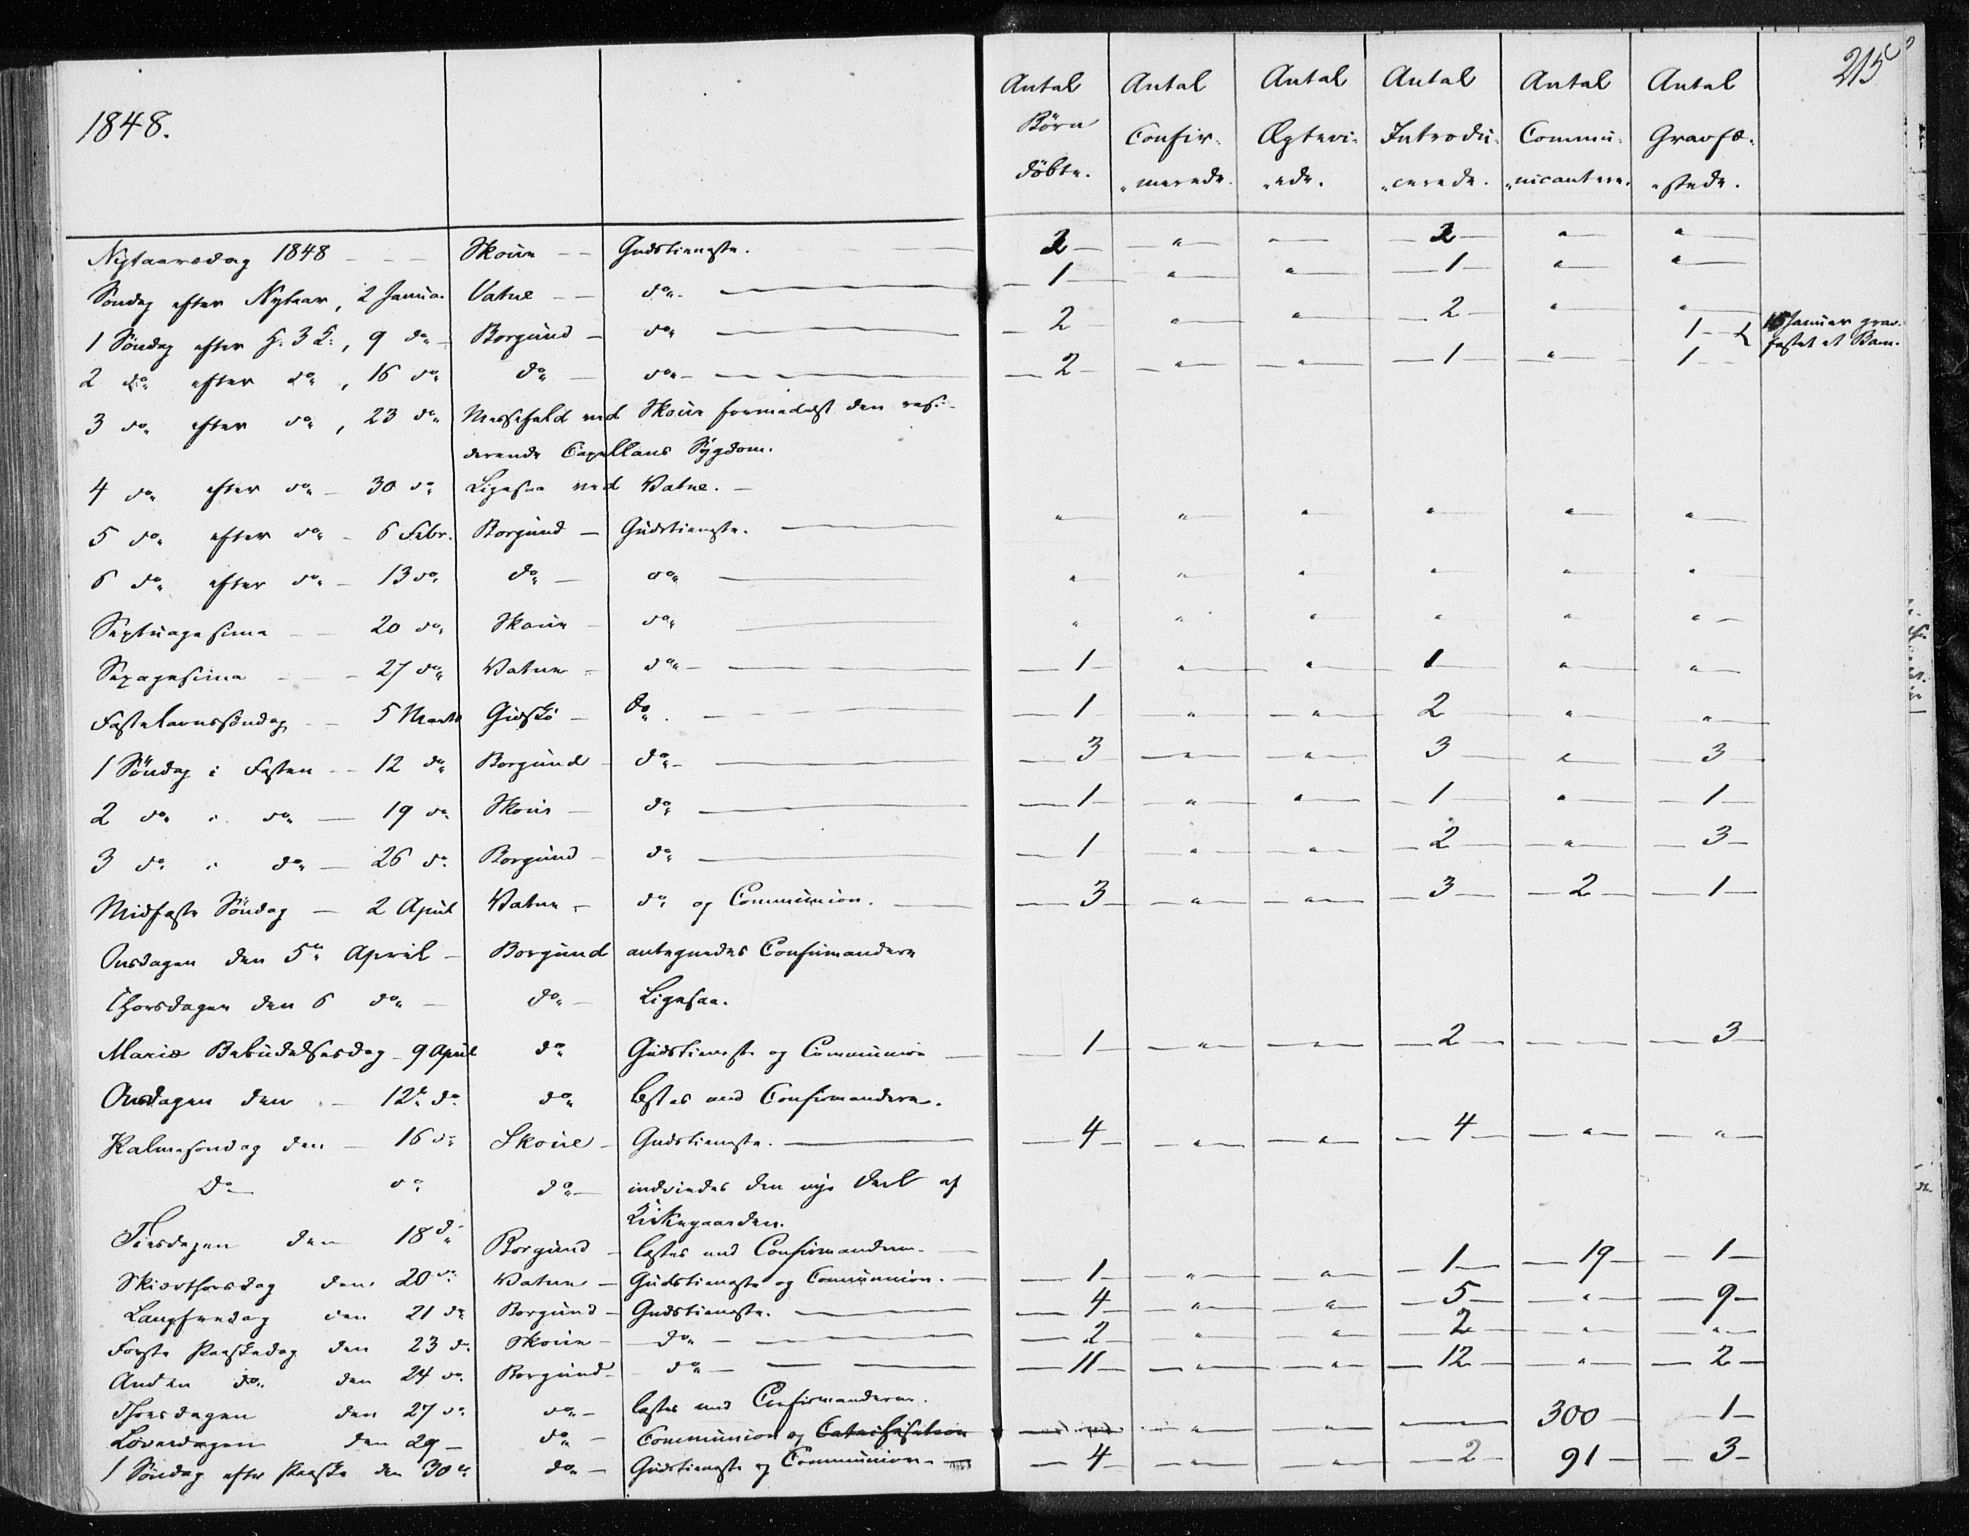 215
1848.
Antal Börn döbte. Antal Confir-merede. Antal Ægtevi-ede. Antal Introdu-cerede. Antal Commu-nicantere. Antal Gravfæ-stede.
Nytaarsdag 1848 - - - Skoue - - Gudstieneste. 2 " 2 " "
Søndag efter Nytaar, 2 Januar Vatne - - do. 1 " " 1 " "
1 Søndag efter H. 3 K., 9 do Borgund - do 2 " " 2 " "
1 - 15 Januar grav-
festet et Barn.
2 do efter do, 16 do do - do 2 " " 1 " 1
3 do efter do, 23 do Messefald ved Skoue formedelst den resi-
derende Capellans Sygdom.
4 do efter do - 30 do Ligesaa ved Vatne. -
5 do efter do - 6 Febr. Borgund - Gudstieneste. " " " " " "
6 do efter do - 13 do do - do " " " " " "
Septuagesima - - 20 do Skoue do " " " " " "
Sexagesima - - 27 do Vatne - do 1 " " 1 " "
Fastelavnssöndag - - 5 Marts Giskö - do. 1 " " 2 " "
1 Söndag i Fasten - - 12 do Borgund - do 3 " " 3 " 3
2 do i do - 19 do Skoue - do 1 " " 1 " 1
3 do i do - 26 do Borgund - do 1 " " 2 " 3
Midfaste Söndag - 2 April Vatne - do og Communion. 3 " " 3 2 1
Onsdagen den 5te April - Borgund antegnedes Confirmandere
Thorsdagen den 6 do - do - Ligesaa.
Mariæ Bebudelsesdag - 9 April do Gudstieneste og Communion 1 " " 2 - 3
Onsdagen den - 12te do do læstes med Confirmandere.
Palmesøndag den - 16 do Skoue - Gudstieneste. 4 " " 4 " "
Do do do - indviedes den nye Deel af
Kirkegaarden.
Tirsdagen den 18 do Borgund - læstes med Confirmandere.
Skiærthorsdag den 20 do Vatne - Gudstieneste og Communion. 1 " " 1 19 1
Langfredag den 21 do Borgund - Gudstieneste. 4 " " 5 " 9
Første Paaskedag den 23 do Skoue - do 2 " " 2 " "
Anden do den 24 do Borgund - do 11 " " 12 " 2
Thorsdagen den 27 do do - læstes med Confirmandere.
Løverdagen den 29 - do - Communion og Catechisation " " 300 1
1 Söndag efter Paaske den 30te do - Gudstieneste og Communion - 4 2 91 3